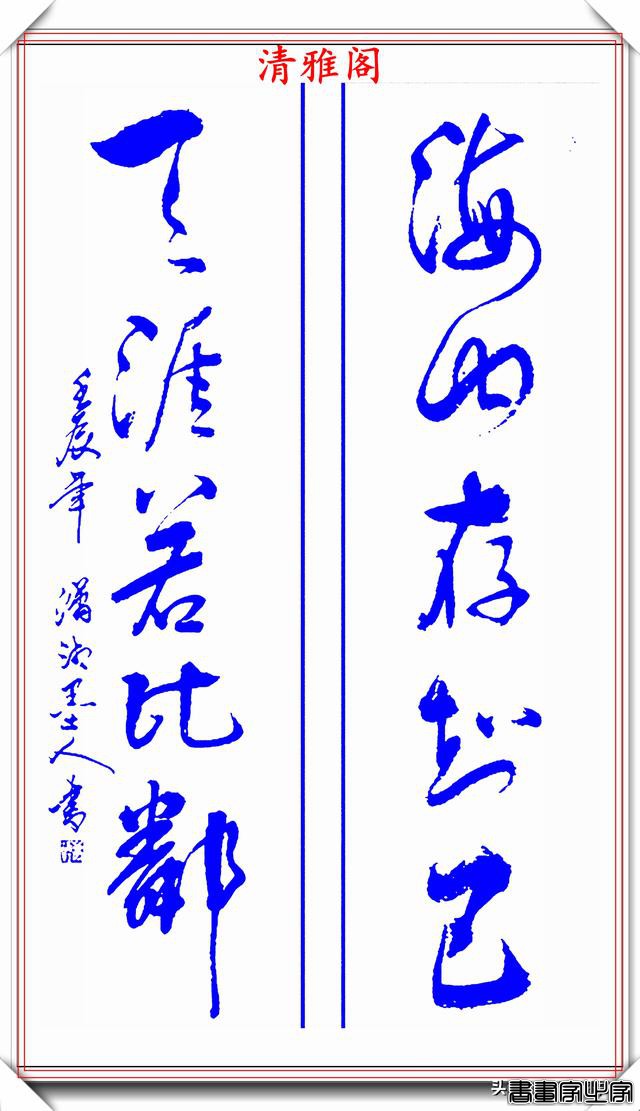 清雅阁
海内存知己
天涯若比邻
壬辰年 潇湘墨士人书
头
书画家世家